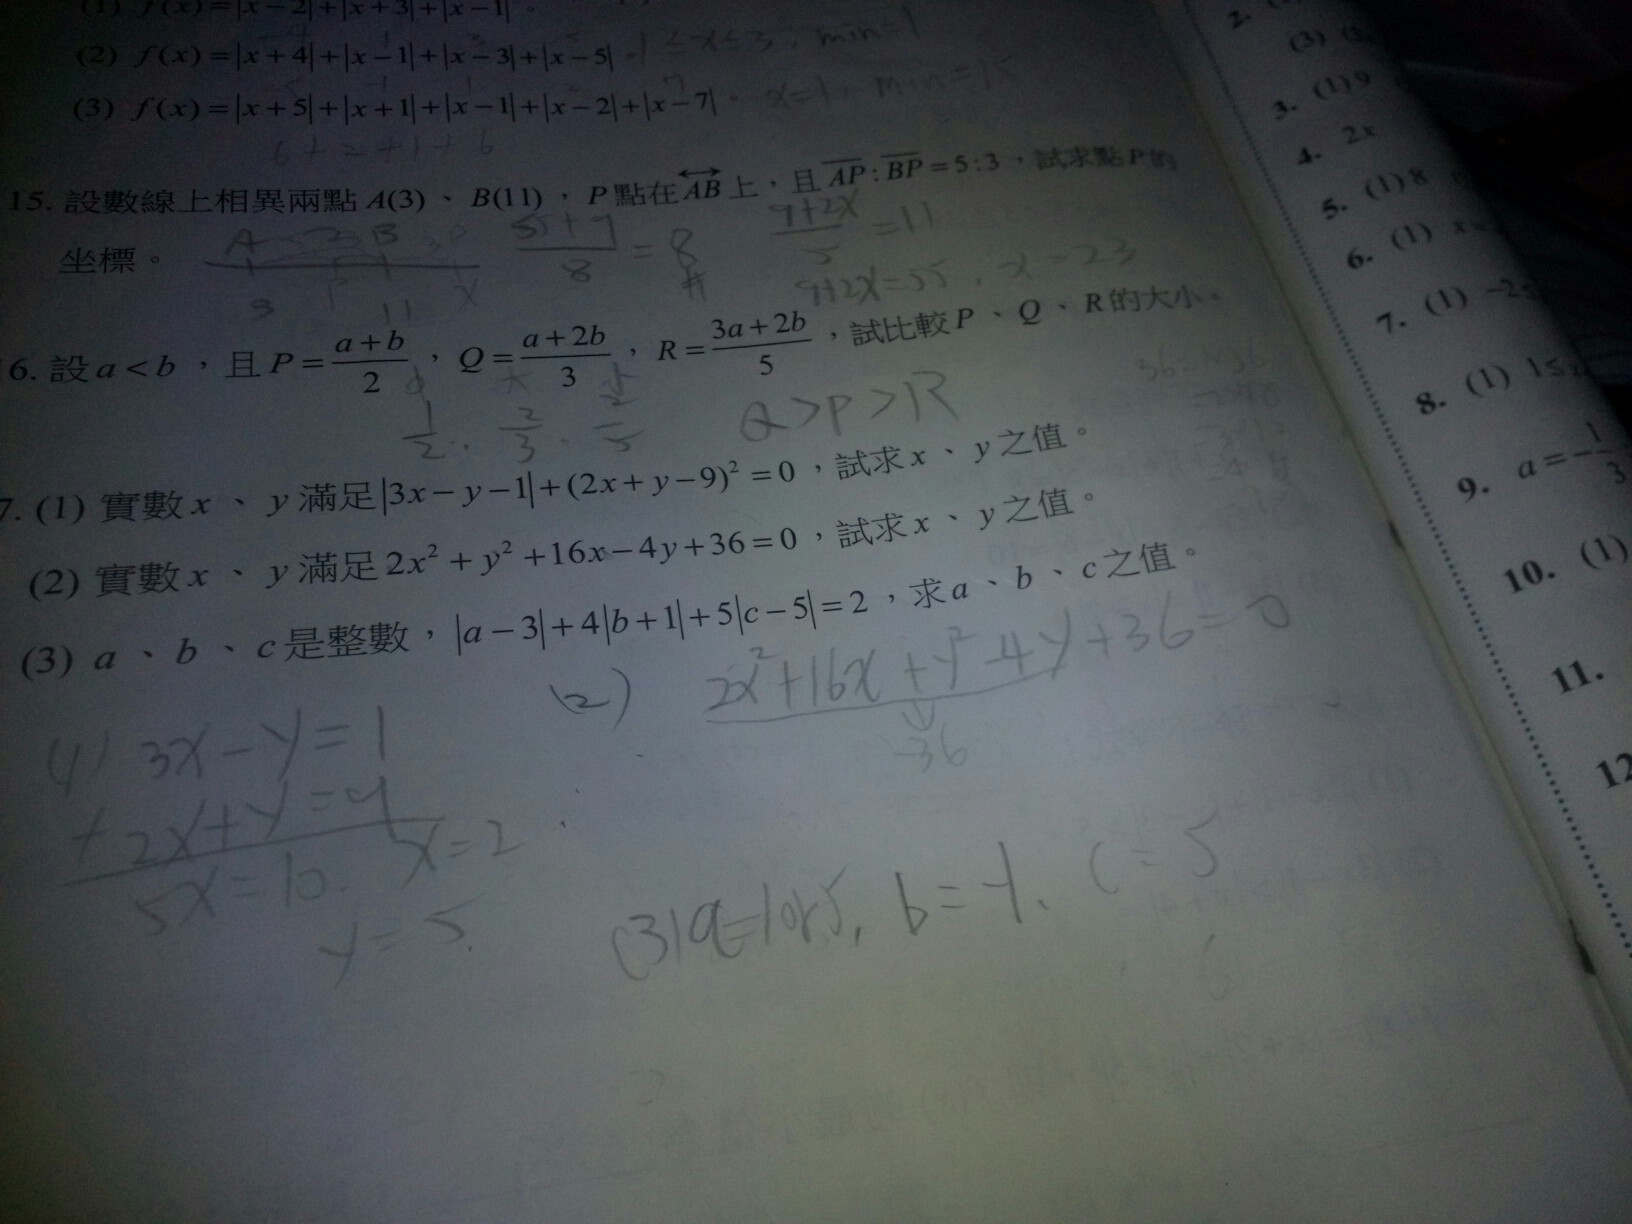 (1) f(x)=|x-2|+|x+3|+|x-1|。
(2) f(x)=|x+4|+|x-1|+|x-3|+|x-5|。 1≤x≤3, min=1
(3) f(x)=|x+5|+|x+1|+|x-1|+|x-2|+|x-7|。 x=1, min=15
6+2+1+6
15. 設數線上相異兩點A(3)、B(11),P點在AB上,且AP:BP=5:3,試求點P的
坐標。
A 5 3 B 3 P
3 P 11 X
(55+9)/8=8
(9+2x)/5=11
9+2x=55, x=23
16. 設a<b,且P=(a+b)/2,Q=(a+2b)/3,R=(3a+2b)/5,試比較P、Q、R的大小。
1/2. 2/3. 2/5 Q>P>R
7. (1) 實數x、y滿足|3x-y-1|+(2x+y-9)²=0,試求x、y之值。
(2) 實數x、y滿足2x²+y²+16x-4y+36=0,試求x、y之值。
(3) a、b、c是整數,|a-3|+4|b+1|+5|c-5|=2,求a、b、c之值。
(2) 2x²+16x+y²-4y+36=0
-36
(1) 3x-y=1
+2x+y=9
5x=10. x=2
y=5.
(3) a=1or5, b=-1. c=5
6
2.
(3)
3. (1)9
4. 2x
5. (1)8
6. (1) x=
7. (1) -2≤
8. (1) 1≤
9. a=-1/3
10. (1)
11.
12